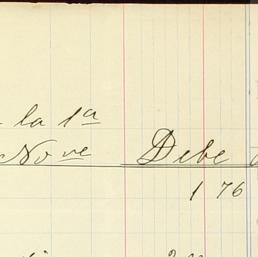 la 1ª
Nove Debe
1 76